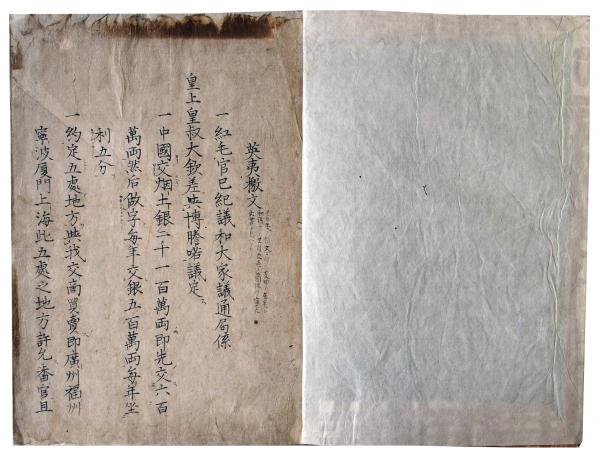 英夷撇文
一紅毛官已紀議和大家議通局係
皇上皇叔大欽差與博謄啱議定
一中國交烟土銀二千一百萬両即先交六百
萬両然后做字每年交銀五百萬両每年坐
利五分
一約定五處地方與我交商買賣即廣州福州
寧波厦門上海此五處之地方許允番官且